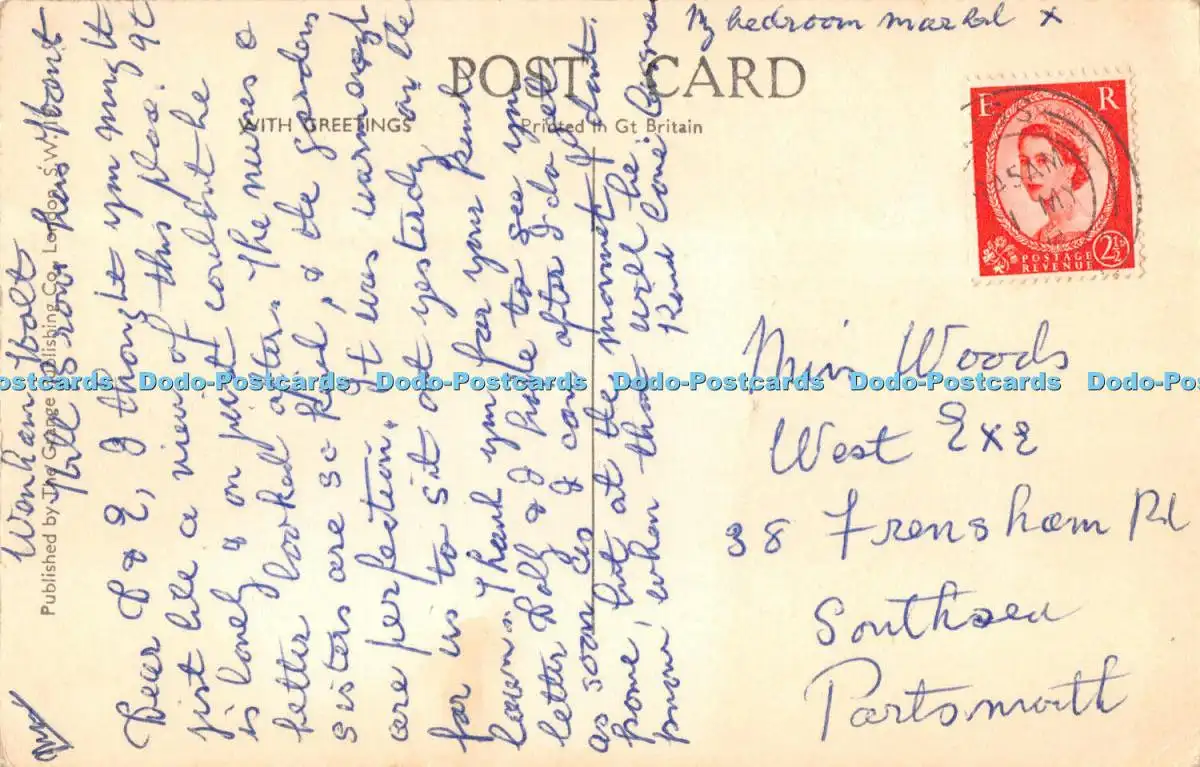 My bedroom marked x
POST CARD
WITH GREETINGS
Printed in Gt Britain
E R
POSTAGE
REVENUE
2½D
Miss Woods
West Exe
38 Frensham Rd
Southsea
Portsmouth
Published by The Grange Publishing Co., London, S.W.
Wonham
Hill Grove
Dear & E, I thought you might
just like a view of this place. It
is lovely & on just couldn't be
better looked after. The nurses &
sisters are so kind, & the gardens
are perfection. It was warm enough
for us to sit out yesterday on the
lawn. Thank you for your kind
letter Dolly & I hope to see you
as soon as I can after I do get
home, but at the moment I don't
know when that will be.
Kind Love
Dodo-Postcards Dodo-Postcards Dodo-Postcards Dodo-Postcards Dodo-Postcards